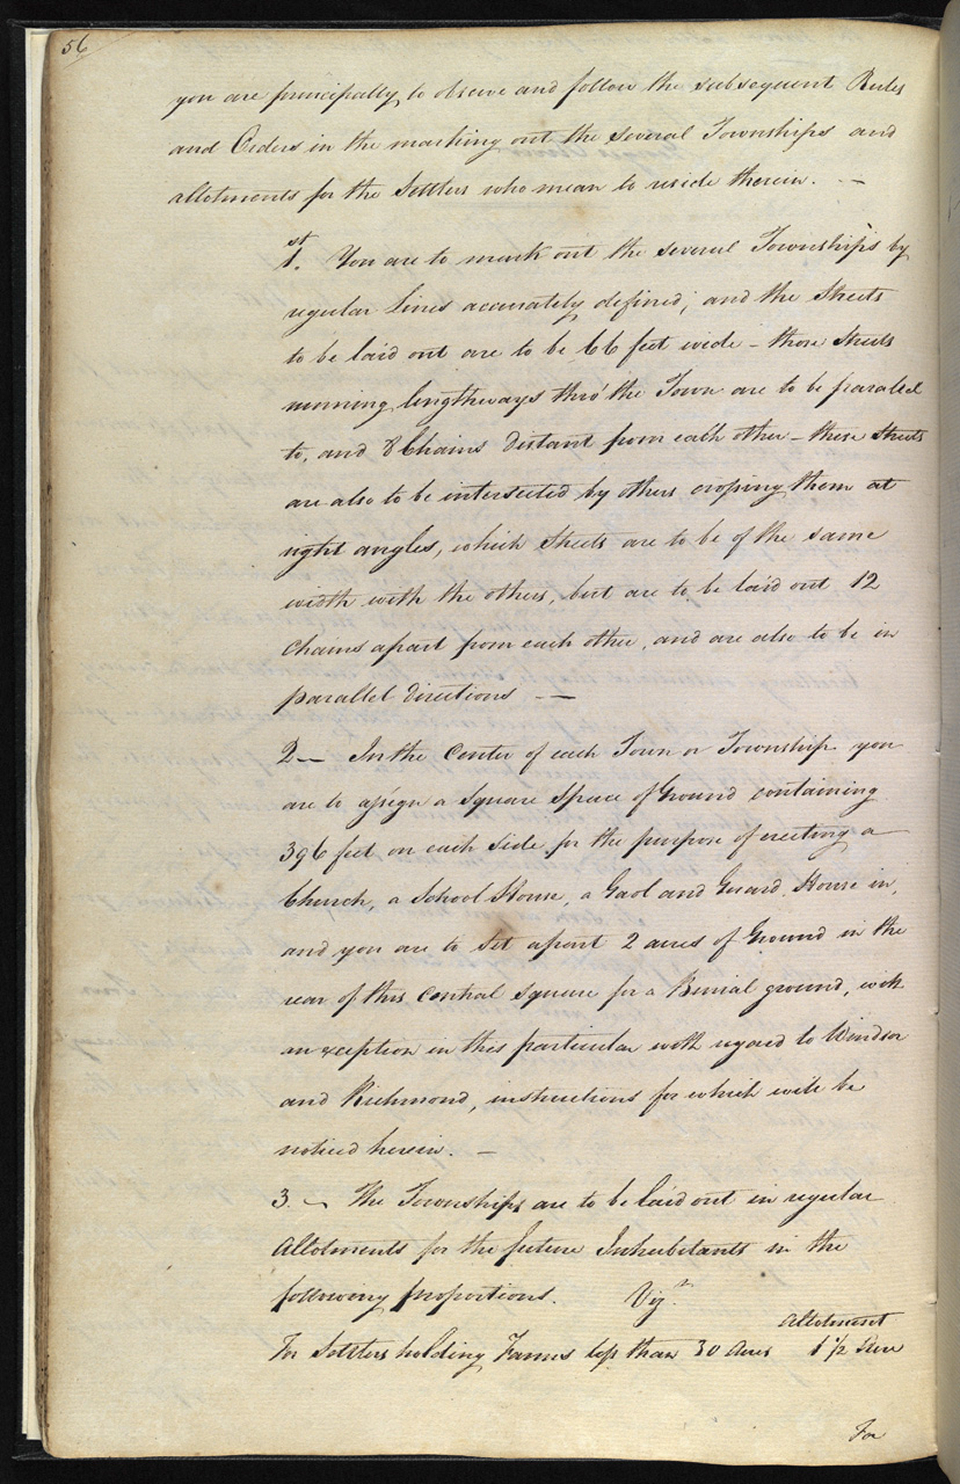 56
you are principally to observe and follow the subsequent Rules
and Orders in the marking out the several Townships and
allotments for the Settlers who mean to reside therein. —
1.st You are to mark out the several Townships by
regular Lines accurately defined; and the Streets
to be laid out are to be 66 feet wide – those Streets
running lengthways thro' the Town are to be paralel
to, and 8 Chains distant from each other – these Streets
are also to be intersected by others crossing them at
right angles, which Streets are to be of the same
width with the others, but are to be laid out 12
Chains apart from each other, and are also to be in
parallel directions — —
2 — In the Center of each Town or Township you
are to assign a Square Space of Ground containing
396 feet on each Side for the purpose of erecting a
Church, a School House, a Gaol and Guard House in,
and you are to Set apart 2 acres of Ground in the
rear of this Central Square for a Burial ground, with
an exception in this particular with regard to Windsor
and Richmond, instructions for which will be
noticed herein. —
3. — The Townships are to be laid out in regular
Allotments for the future Inhabitants in the
following proportions. Vizt.
Allotment
For Settlers holding Farms less than 30 Acres 1 1/2 Acre
For